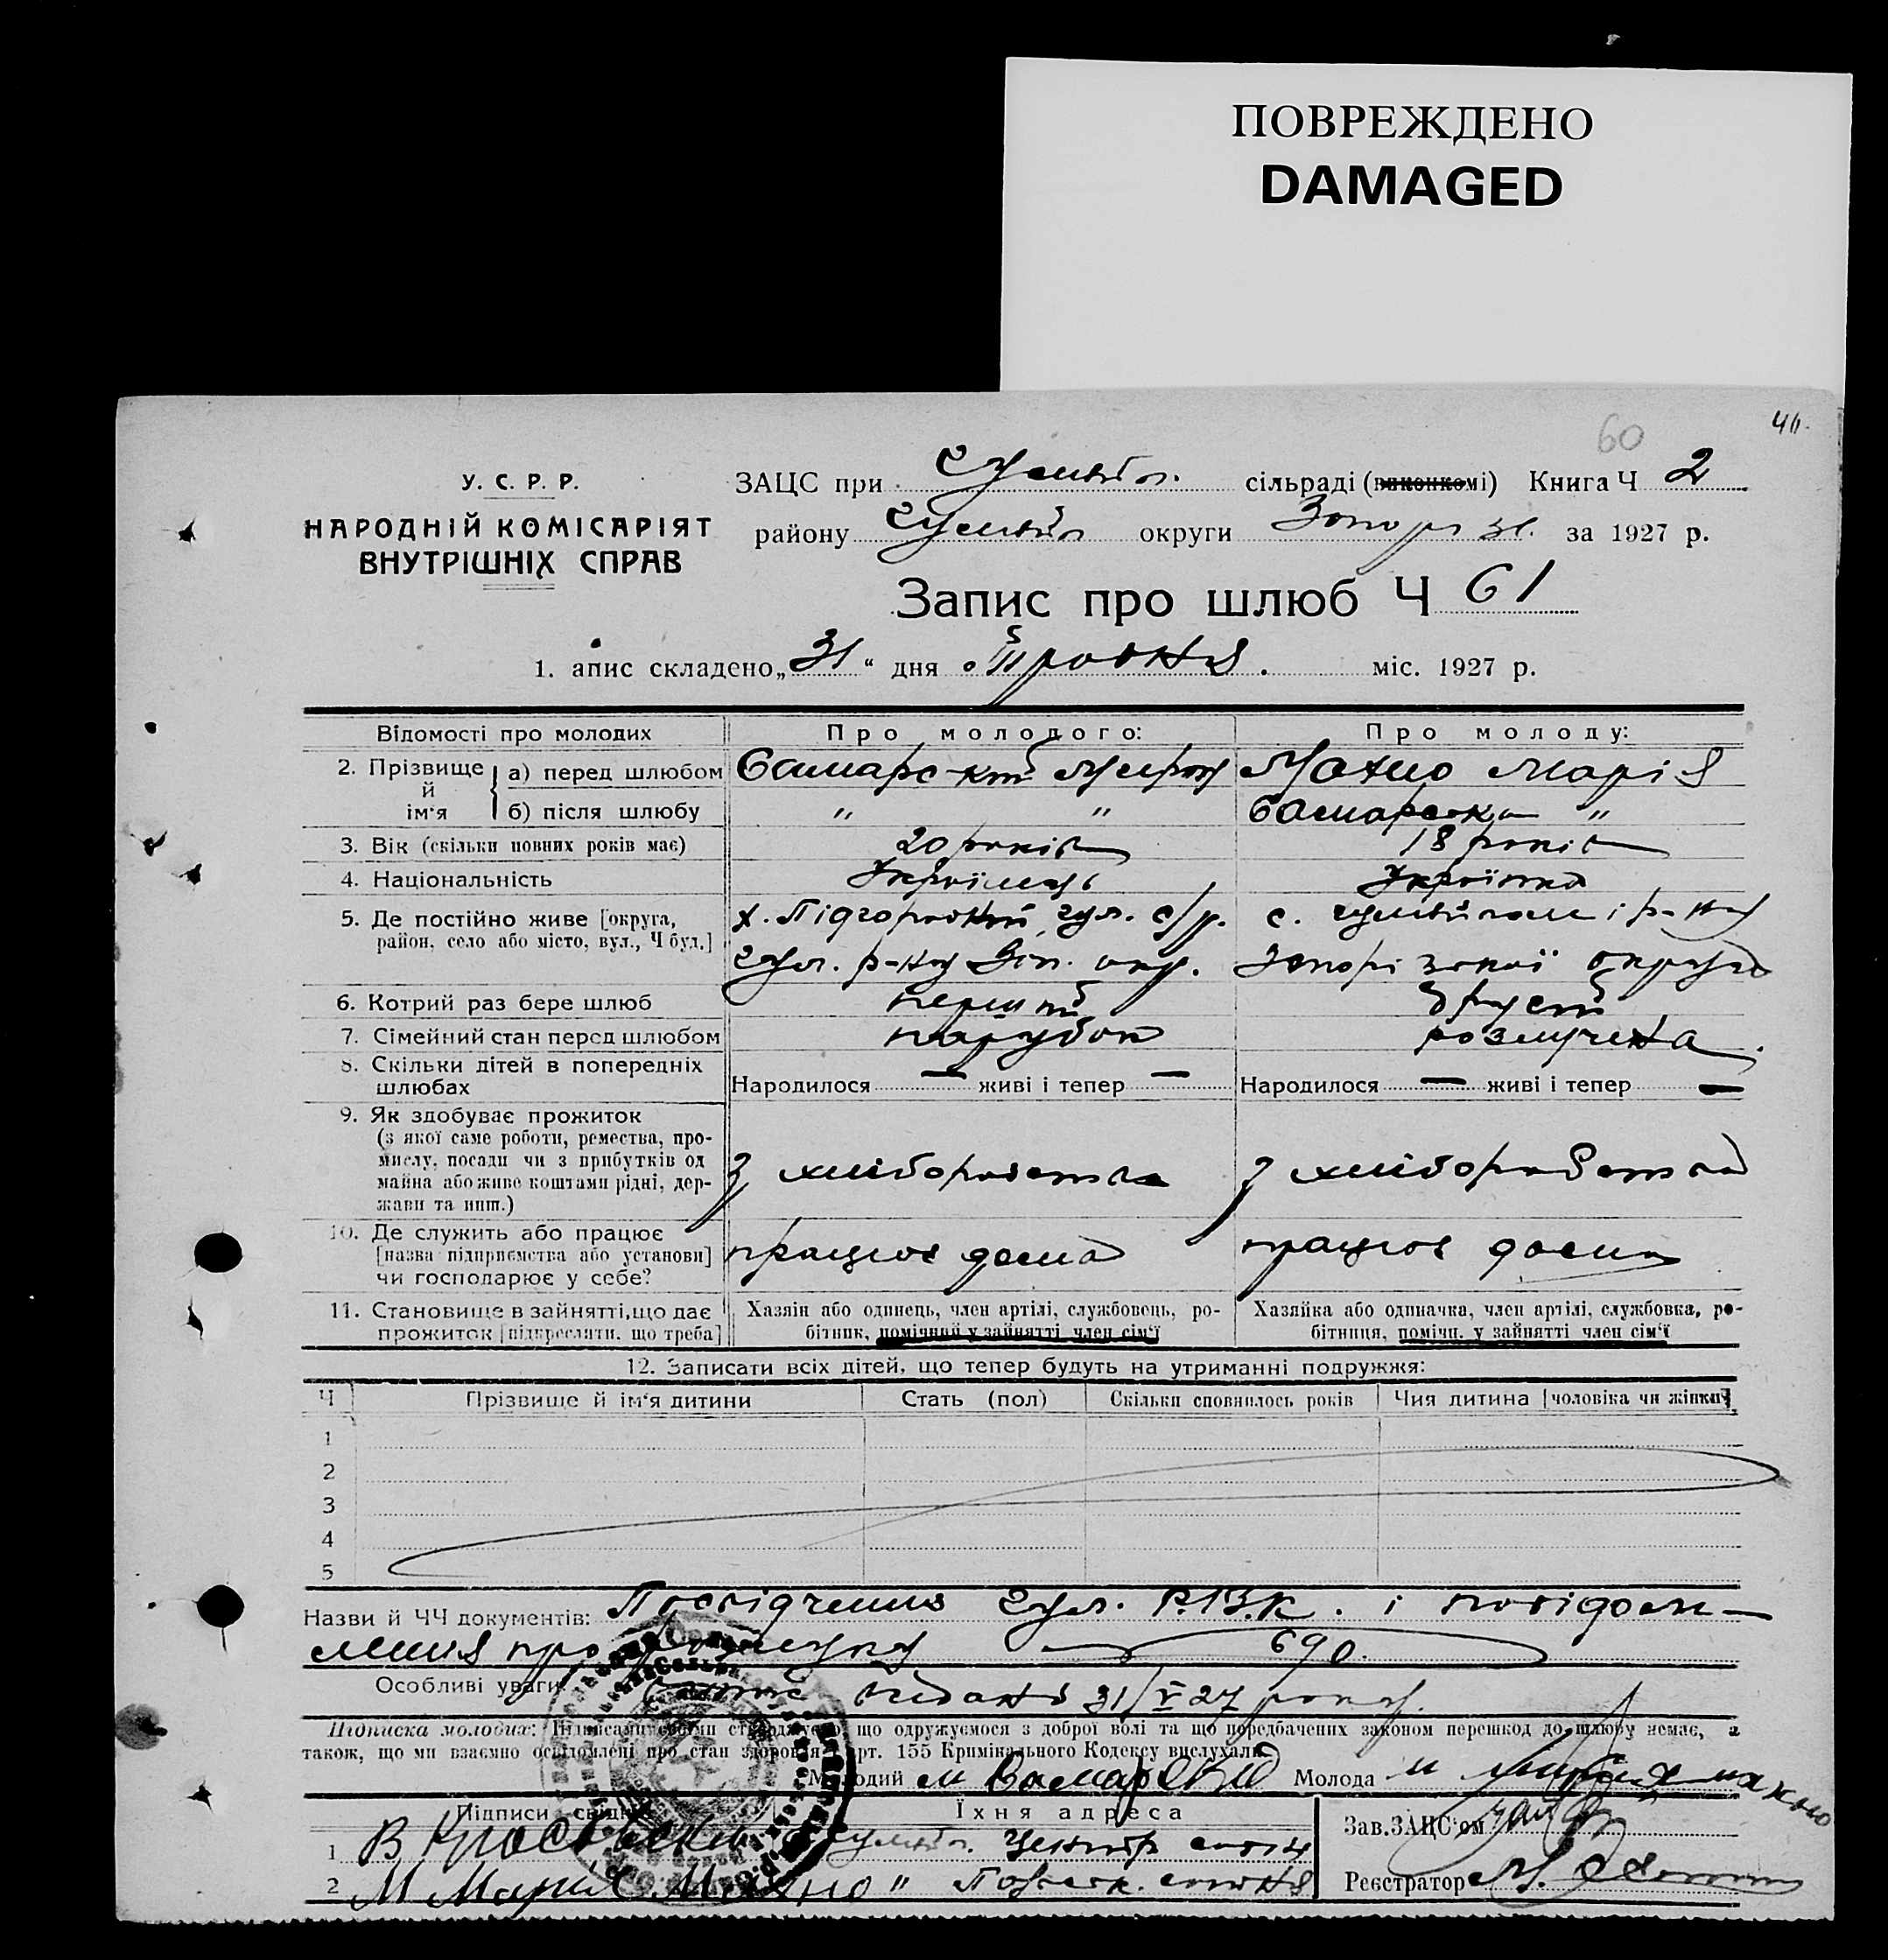 ПОВРЕЖДЕНО
DAMAGED
60
У. С. Р. Р.
НАРОДНІЙ КОМІСАРІЯТ
ВНУТРІШНІХ СПРАВ
ЗАЦС при сільраді (виконкомі) Книга Ч 2
району округи за 1927 р.
Запис про шлюб Ч 61
1. апис складено „31“ дня Травня міс. 1927 р.
Відомості про молодих Про молодого: Про молоду:
2. Прізвище й ім‘я а) перед шлюбом Самарський Махно Марія
б) після шлюбу " " Самарська "
3. Вік (скільки повних років має) 20 років 18 років
4. Національність Українець Українка
5. Де постійно живе [округа, х. гул. с/р. с. р-ну
район, село або місто, вул., Ч буд.] Гул. р-ну Зап. окр. Запорізької округи
6. Котрий раз бере шлюб перший другий
7. Сімейний стан перед шлюбом парубок розлучена
8. Скільки дітей в попередніх шлюбах Народилося — живі і тепер — Народилося — живі і тепер —
9. Як здобуває прожиток
(з якої саме роботи, ремества, про-
мислу, посади чи з прибутків од
майна або живе коштами рідні, дер-
жави та инш.) З хліборобства З хліборобства
10. Де служить або працює
[назва підприємства або установи]
чи господарює у себе? працює дома працює дома
11. Становище в зайнятті, що дає Хазяін або одинець, член артілі, службовець, ро- Хазяйка або одиначка, член артілі, службовка, ро-
прожиток [підкреслити, що треба] бітник, помічний у зайнятті член сім‘ї бітниця, помічн. у зайнятті член сім‘ї
12. Записати всіх дітей, що тепер будуть на утриманні подружжя:
Ч Прізвище й ім‘я дитини Стать (пол) Скільки сповнилось років Чия дитина [чоловіка чи жінки]
1
2
3
4
5
Назви й ЧЧ документів: Посвідчення Гул. Р.В.К. і повідом-
лення про 690.
Особливі уваги: видано 31/V 27 року.
Підписка молодих: Підписами своїми стверджуємо, що одружуємося з доброї волі та що передбачених законом перешкод до шлюбу немає, а
також, що ми взаємно освідомлені про стан здоров‘я й арт. 155 Кримінального Кодексу вислухали.
Молодий М Самарский Молода
Підписи свідків Їхня адреса
1 В
2 М Марія Махно "
Зав. ЗАЦС‘ом
Реєстратор